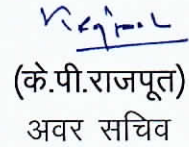 (के.पी.राजपूत)
अवर सचिव